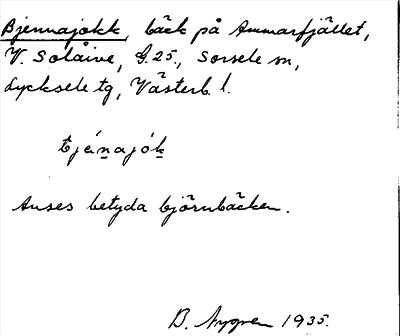 Bjennajokk, bäck på Ammarfjället,
V. Solåive, G.25., Sorsele sn,
Lycksele tg, Västerb. l.
tjénajók
Anses betyda björnbäcken.
B. Nygren 1935.